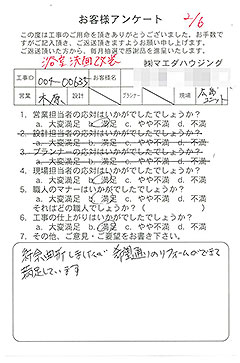 お客様アンケート 2/6
この度は工事のご用命を頂きありがとうございました。お手数で
すがご記入頂き、ご返送頂きますようお願い申し上げます。
ご返送頂いた方から、毎月抽選で感謝品を進呈いたします。
浴室洗面改装 ㈱マエダハウジング
工事ID 004-00635 お客様名
営業 木原 設計 プランナー 現場
1. 営業担当者の応対はいかがでしたでしょうか？
a. 大変満足 b. 満足 c. やや不満 d. 不満
2. 設計担当者の応対はいかがでしたでしょうか？
a. 大変満足 b. 満足 c. やや不満 d. 不満
3. プランナーの応対はいかがでしたでしょうか？
a. 大変満足 b. 満足 c. やや不満 d. 不満
4. 現場担当者の応対はいかがでしたでしょうか？
a. 大変満足 b. 満足 c. やや不満 d. 不満
5. 職人のマナーはいかがでしたでしょうか？
a. 大変満足 b. 満足 c. やや不満 d. 不満
それはどの職人でしょうか？（ ）
6. 工事の仕上がりはいかがでしたでしょうか？
a. 大変満足 b. 満足 c. やや不満 d. 不満
7. その他、ご意見・ご要望をお書き下さい。
紆余曲折しましたが 希望通りのリフォームができて
満足しています